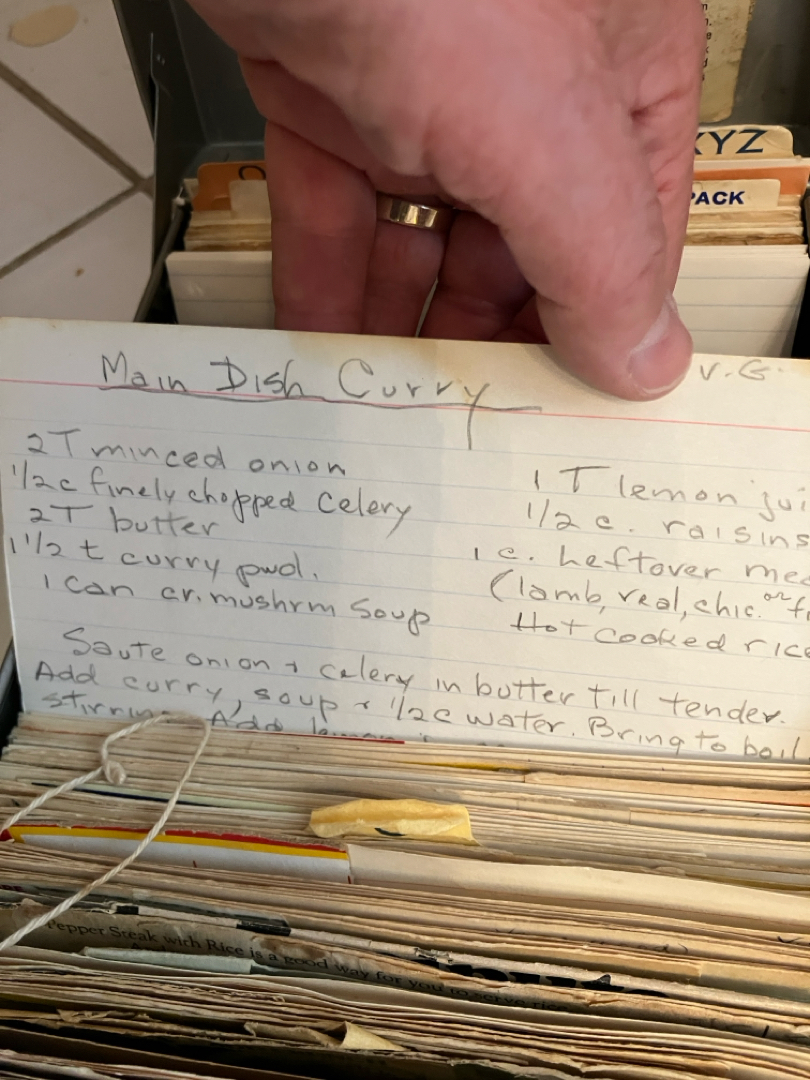 XYZ
PACK
Main Dish Curry
V.G.
2T minced onion
1/2c finely chopped Celery
2T butter
1 1/2 t curry pwd.
1 can cr. mushrm Soup
1 T lemon jui
1/2 c. raisins
1 c. Leftover mea
(lamb, veal, chic. or f
Hot cooked rice
Saute onion + celery in butter till tender.
Add curry, soup + 1/2c water. Bring to boil
stirring. Add lemon
Pepper Steak with Rice is a good way for you to serve